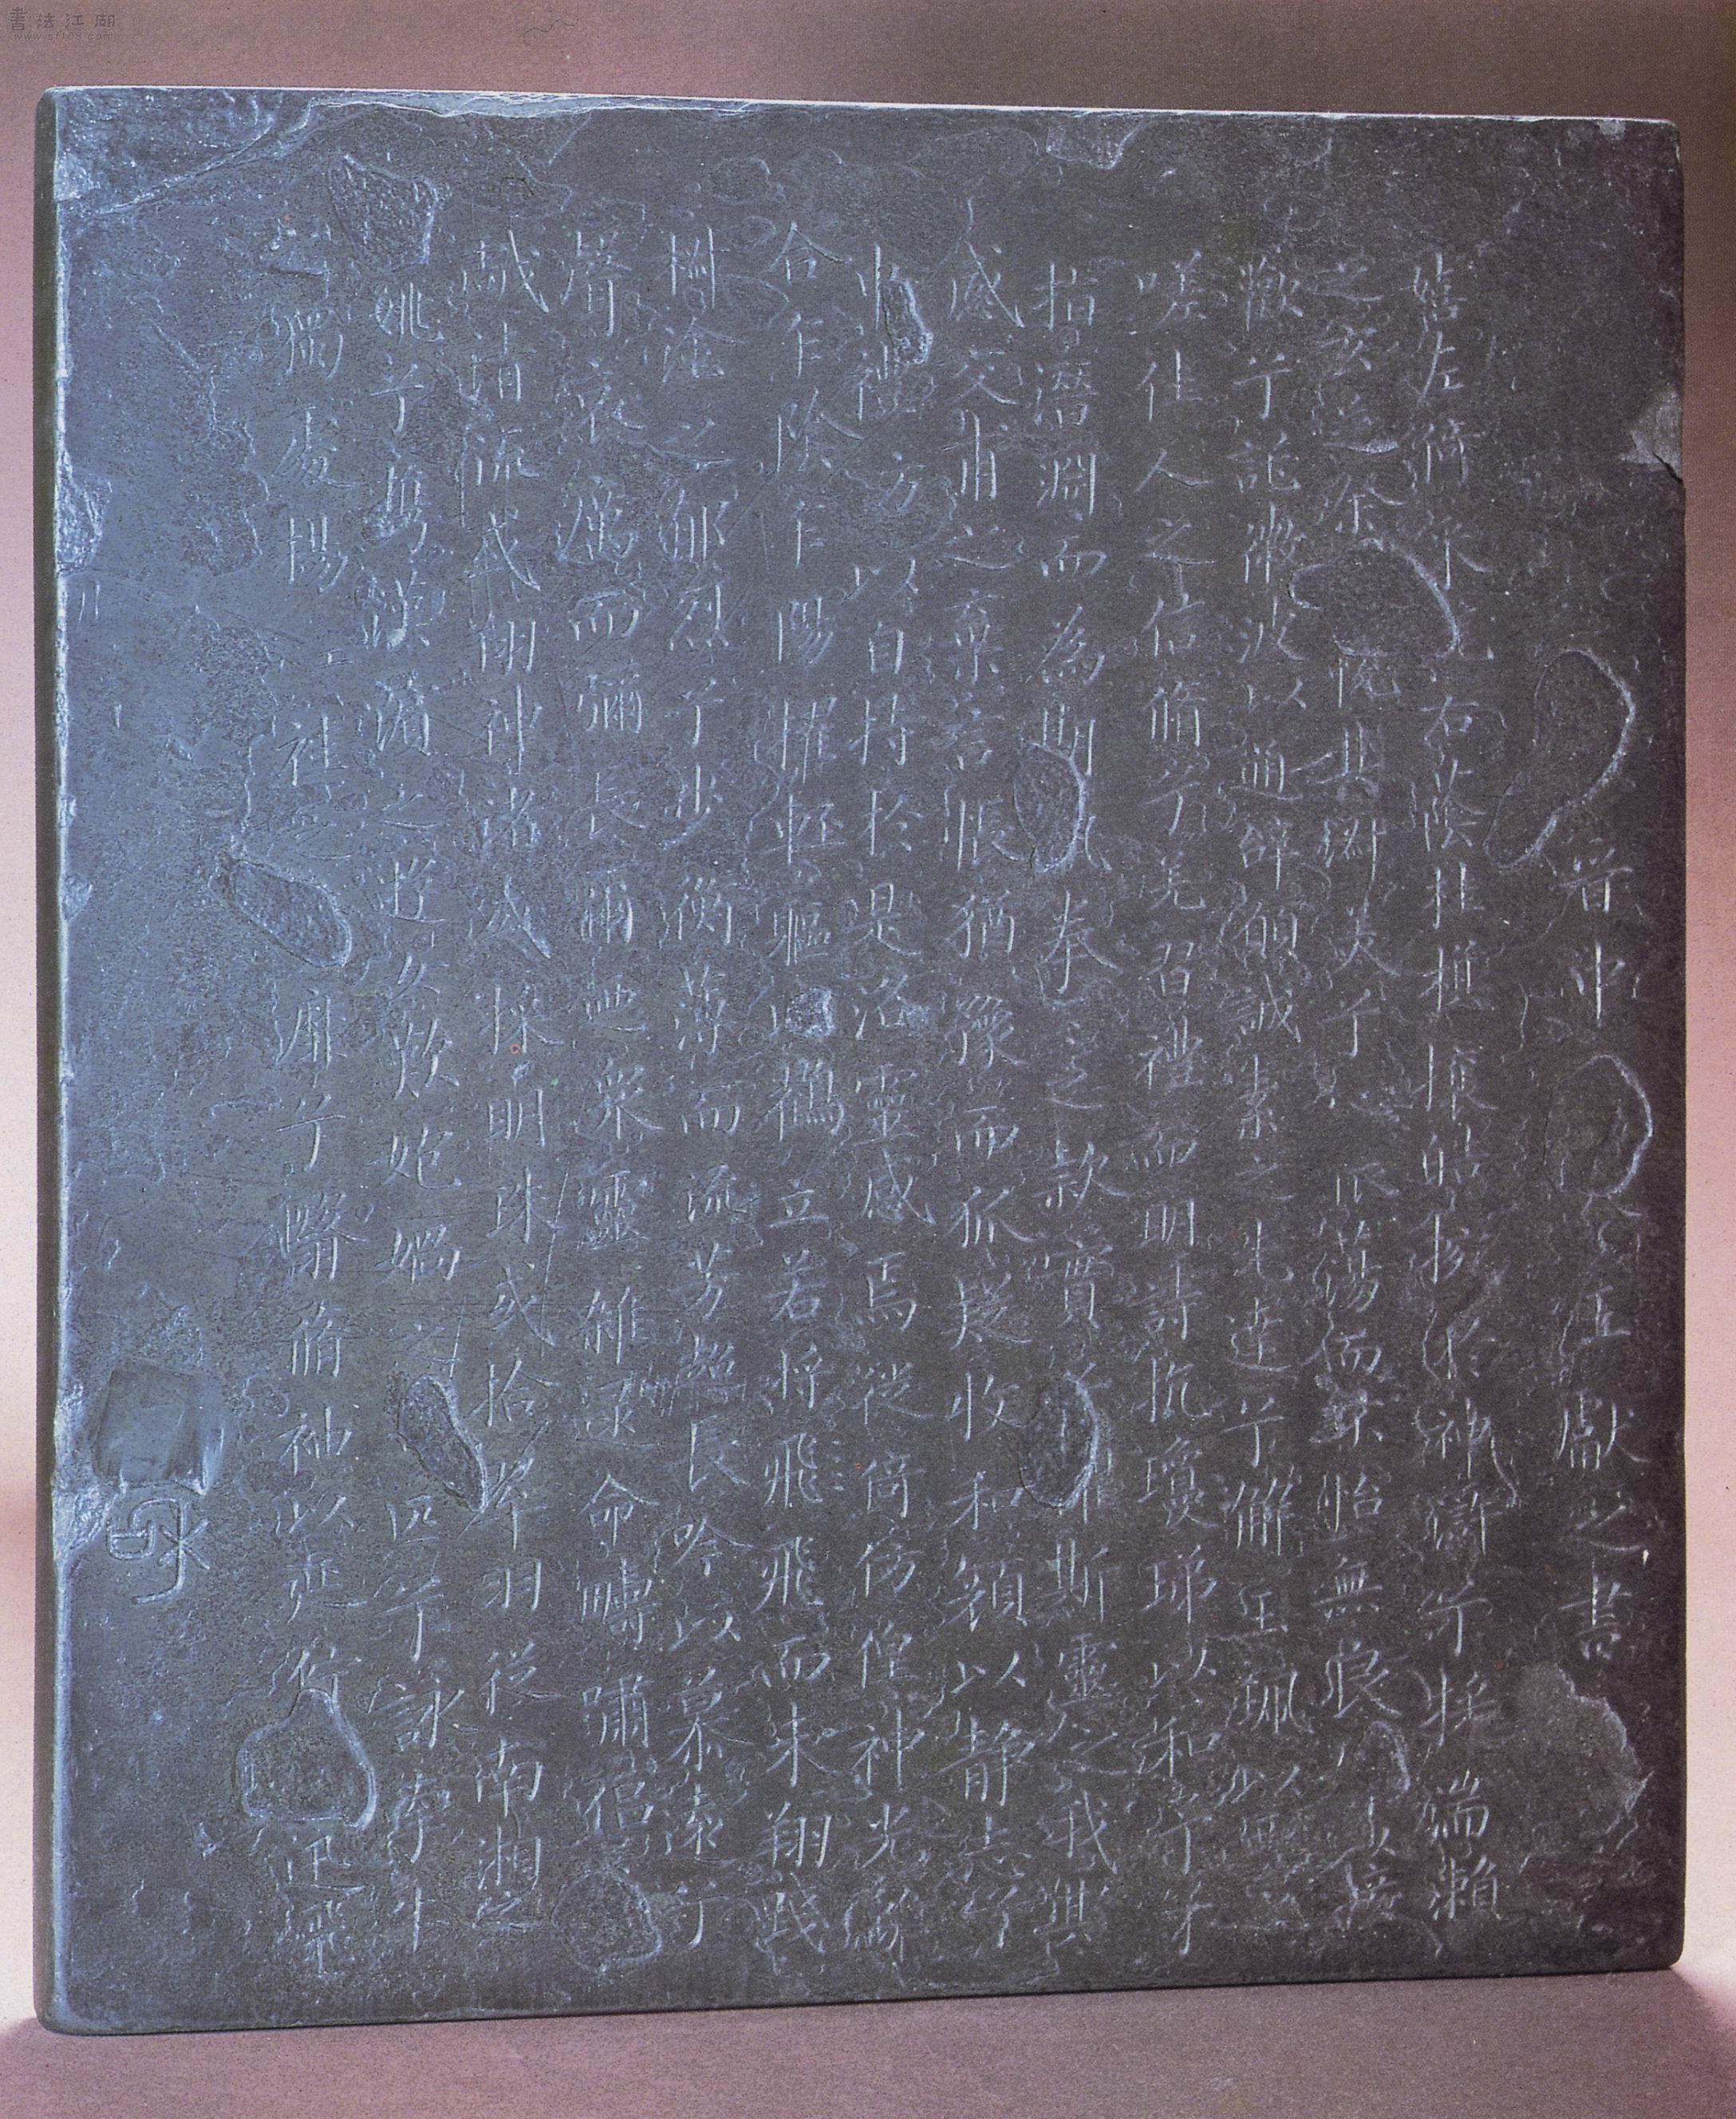 書法江湖
www.sf108.com
晋中王獻之書
嬉左倚采旄右蔭桂旗攘皓捥於神滸兮採湍瀨
之玄芝余悅其淑美兮心振蕩而不怡無良以接
歡兮託微波以通辭願誠素之先達兮解玉珮以要之
嗟佳人之信脩兮羌習禮而明詩抗瓊珶以和兮
指潛淵而為期拳〻之款實兮斯靈之我欺
感交甫之棄言悵猶豫而狐疑收和顏以靜志兮
申禮方以自持於是洛靈感焉徙倚傍偟神光離
合乍陰乍陽擢輕軀以鶴立若將飛而未翔踐
椒塗之郁烈兮步蘅薄而流芳超長吟以慕遠兮
聲哀厲而彌長爾迺眾靈雜遝命疇嘯侶
戲清流或翔神渚或採明珠或拾翠羽從南湘之
姚兮攜漢濱之遊女歎炮媧之匹兮詠牽牛
獨處揚袿靡兮翳脩袖以延佇迅飛